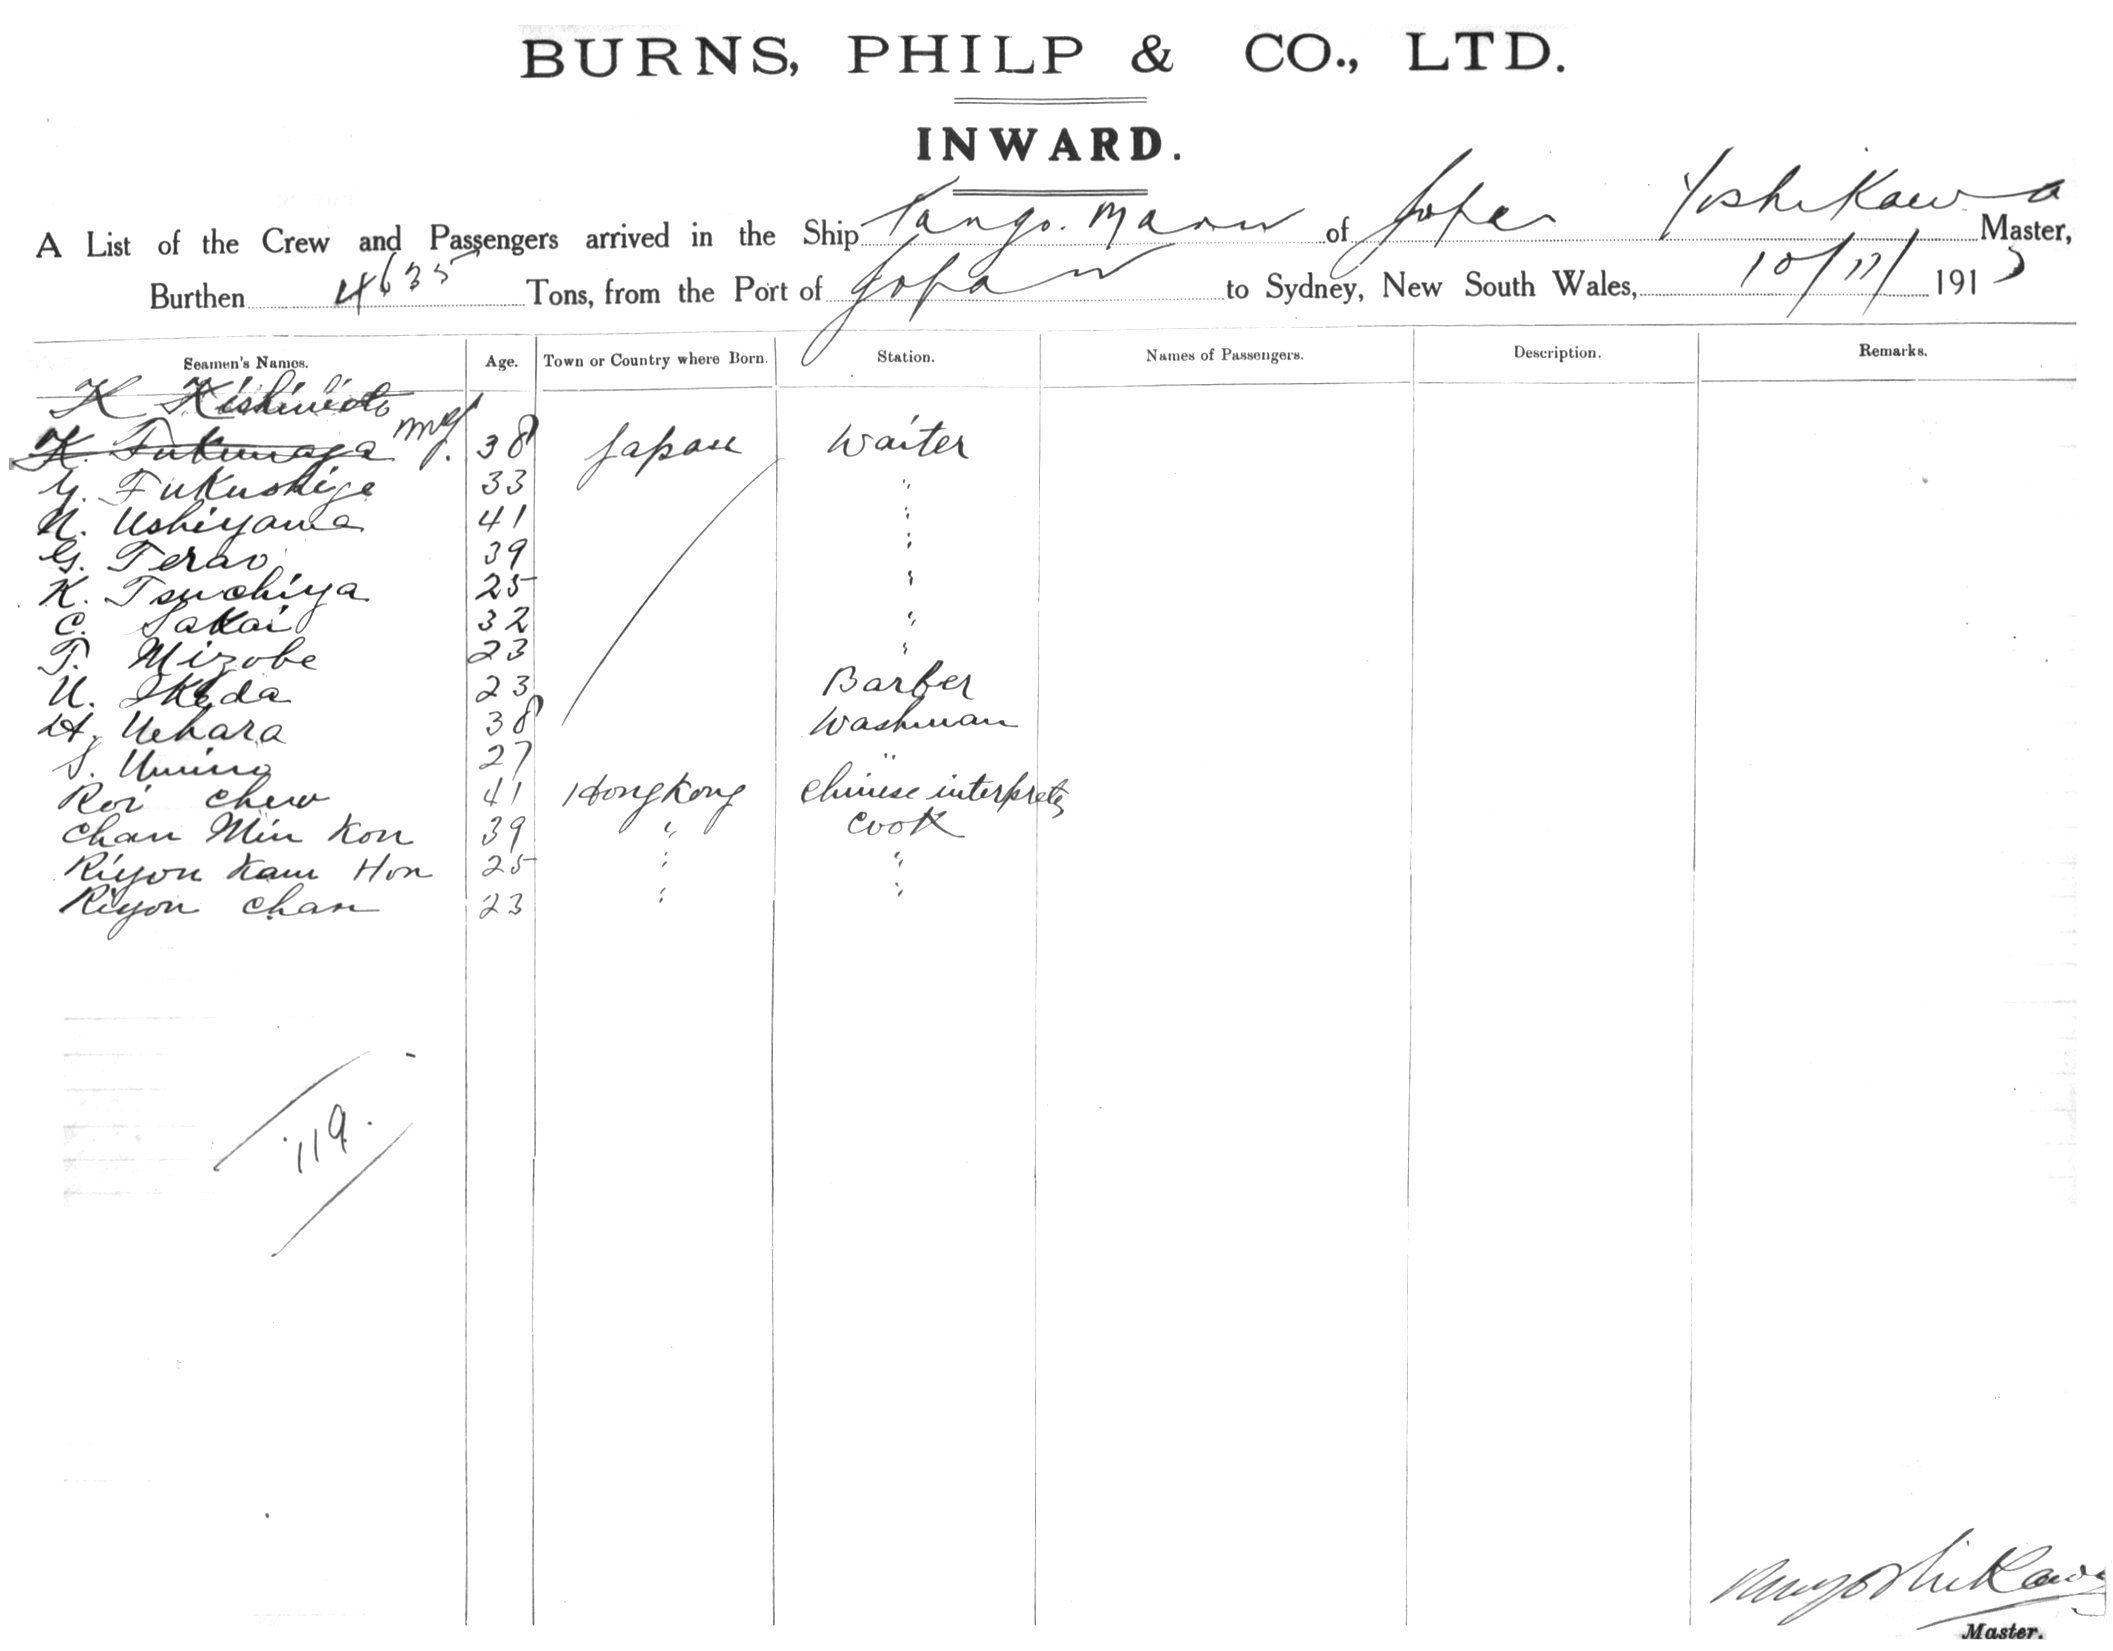 BURNS, PHILP & CO., LTD.
INWARD.
A List of the Crew and Passengers arrived in the Ship Tango Maru of Japan Yoshikawa Master,
Burthen 4635 Tons, from the Port of Japan to Sydney, New South Wales, 10/11/1915
Seamen's Names. Age. Town or Country where Born. Station. Names of Passengers. Description. Remarks.
K Kishimoto
K. Fukunaga 38 Japan Waiter
Y. Fukushige 33 "
N. Ushiyama 41 "
G. Terao 39 "
K. Tsuchiya 25 "
C. Sakai 32 "
T. Mizobe 23 "
U. Ikeda 23 Barber
H. Uehara 38 Washman
S. Umino 27 "
Roi Chew 41 Hongkong Chinese interpreter
Chan Min Kon 39 " Cook
Riyon Kam Hon 25 " "
Riyon Chan 23 " "
119.
Master.